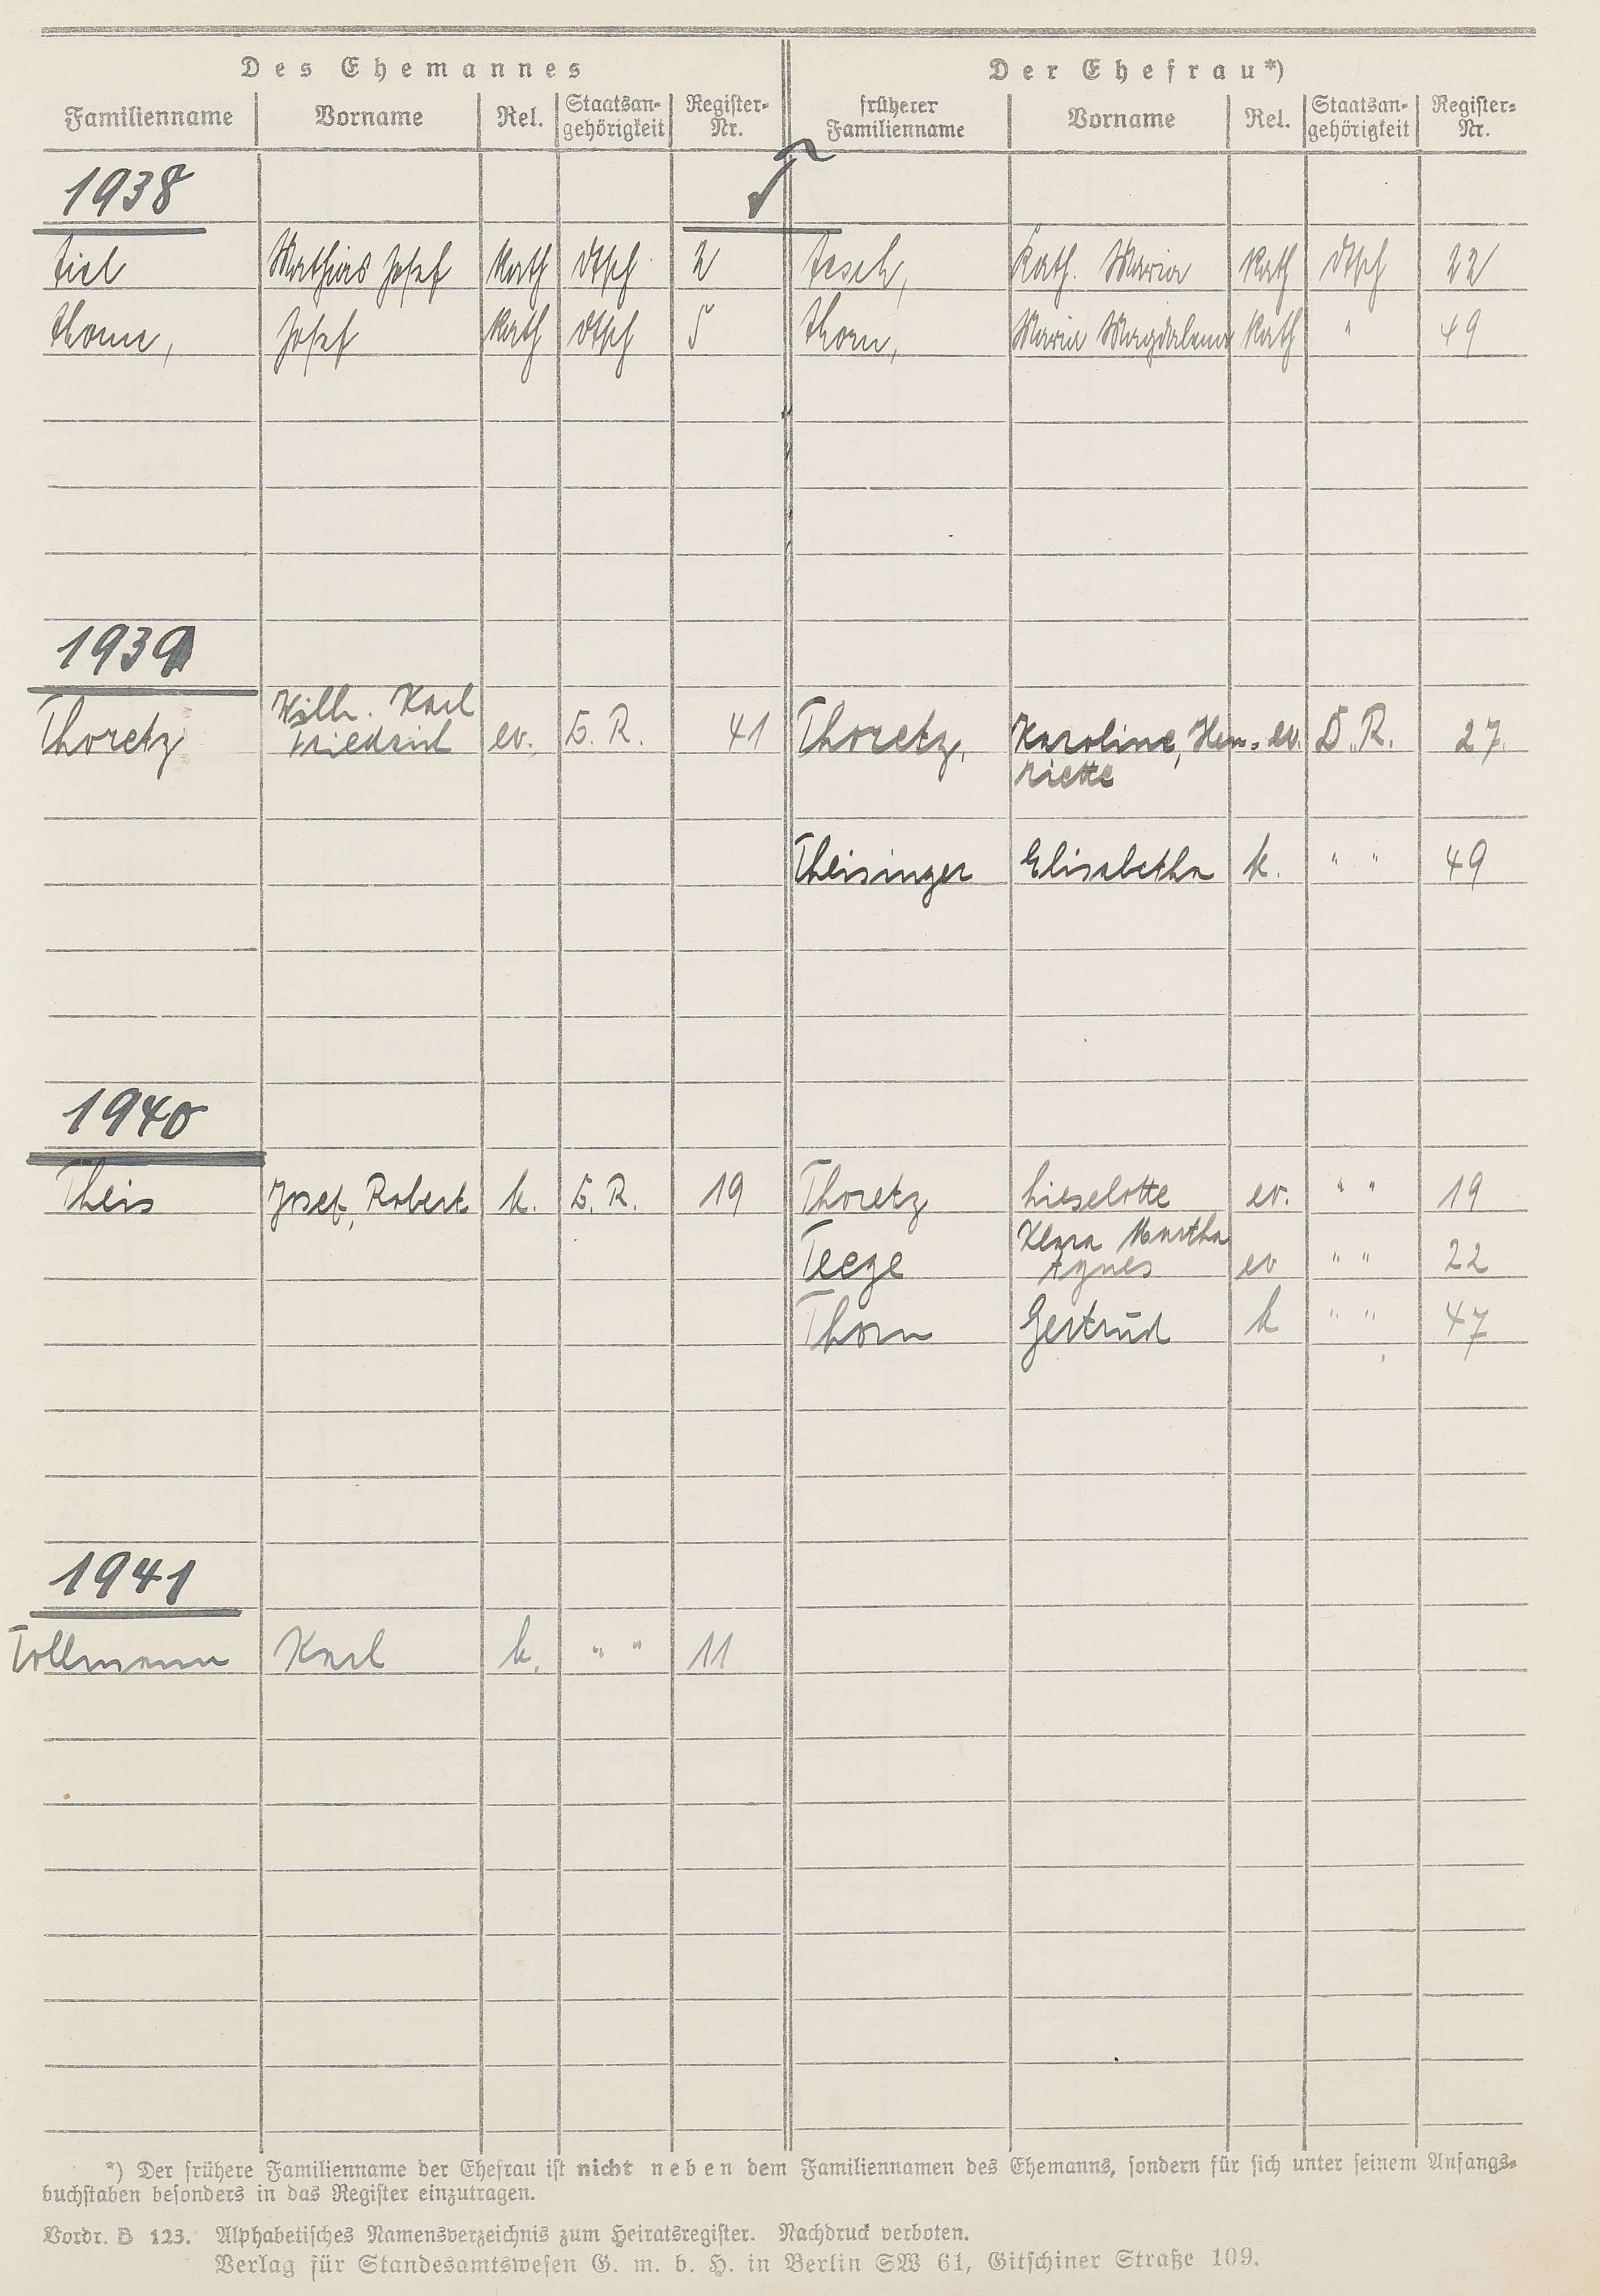 Des Ehemannes Der Ehefrau*)
Familienname Vorname Rel. Staatsan-gehörigkeit Register-Nr. früherer Familienname Vorname Rel. Staatsan-gehörigkeit Register-Nr.
1938 T
Tiel Mathias Josef kath dtsch 2 Tesch, Kath. Maria kath dtsch 22
Thome, Josef kath dtsch 5 Thorn, Maria Magdalena kath " 49
1939
Wilh. Karl
Thoretz Friedrich ev. D. R. 41 Thoretz, Karoline, Hen- ev. D. R. 27.
riette
Theisinger Elisabetha k. " " 49
1940
Theis Josef, Robert k. D. R. 19 Thoretz Lieselotte ev. " " 19
Klara Martha
Teege Agnes ev " " 22
Thorn Gertrud k " " 47
1941
Tollmann Karl k. " " 11
*) Der frühere Familienname der Ehefrau ist nicht neben dem Familiennamen des Ehemanns, sondern für sich unter seinem Anfangs-
buchstaben besonders in das Register einzutragen.
Vordr. B 123. Alphabetisches Namensverzeichnis zum Heiratsregister. Nachdruck verboten.
Verlag für Standesamtswesen G. m. b. H. in Berlin SW 61, Gitschiner Straße 109.